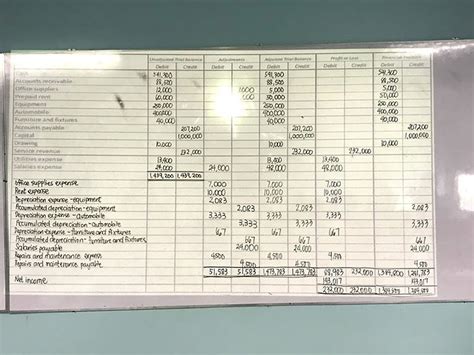 Unadjusted Trial Balance Adjustments Adjusted Trial Balance Profit or Loss Financial Position
Debit Credit Debit Credit Debit Credit Debit Credit Debit Credit
Cash 541,300 541,300 541,300
Accounts receivable 88,500 88,500 88,500
Office supplies 12,000 7,000 5,000 5,000
Prepaid rent 60,000 10,000 50,000 50,000
Equipment 250,000 250,000 250,000
Automobile 400,000 400,000 400,000
Furniture and fixtures 40,000 40,000 40,000
Accounts payable 207,200 207,200 207,200
Capital 1,000,000 1,000,000 1,000,000
Drawing 10,000 10,000 10,000
Service revenue 232,000 232,000 232,000
Utilities expense 13,400 13,400 13,400
Salaries expense 24,000 24,000 48,000 48,000
1,439,200 1,439,200
Office supplies expense 7,000 7,000 7,000
Rent expense 10,000 10,000 10,000
Depreciation expense - equipment 2,083 2,083 2,083
Accumulated depreciation - equipment 2,083 2,083 2,083
Depreciation expense - automobile 3,333 3,333 3,333
Accumulated depreciation - automobile 3,333 3,333 3,333
Depreciation expense - furniture and fixtures 667 667 667
Accumulated depreciation - furniture and fixtures 667 667 667
Salaries payable 24,000 24,000 24,000
Repairs and maintenance expense 4,500 4,500 4,500
Repairs and maintenance payable 4,500 4,500 4,500
51,583 51,583 1,473,783 1,473,783 88,983 232,000 1,384,800 1,241,783
Net income 143,017 143,017
232,000 232,000 1,384,800 1,384,800